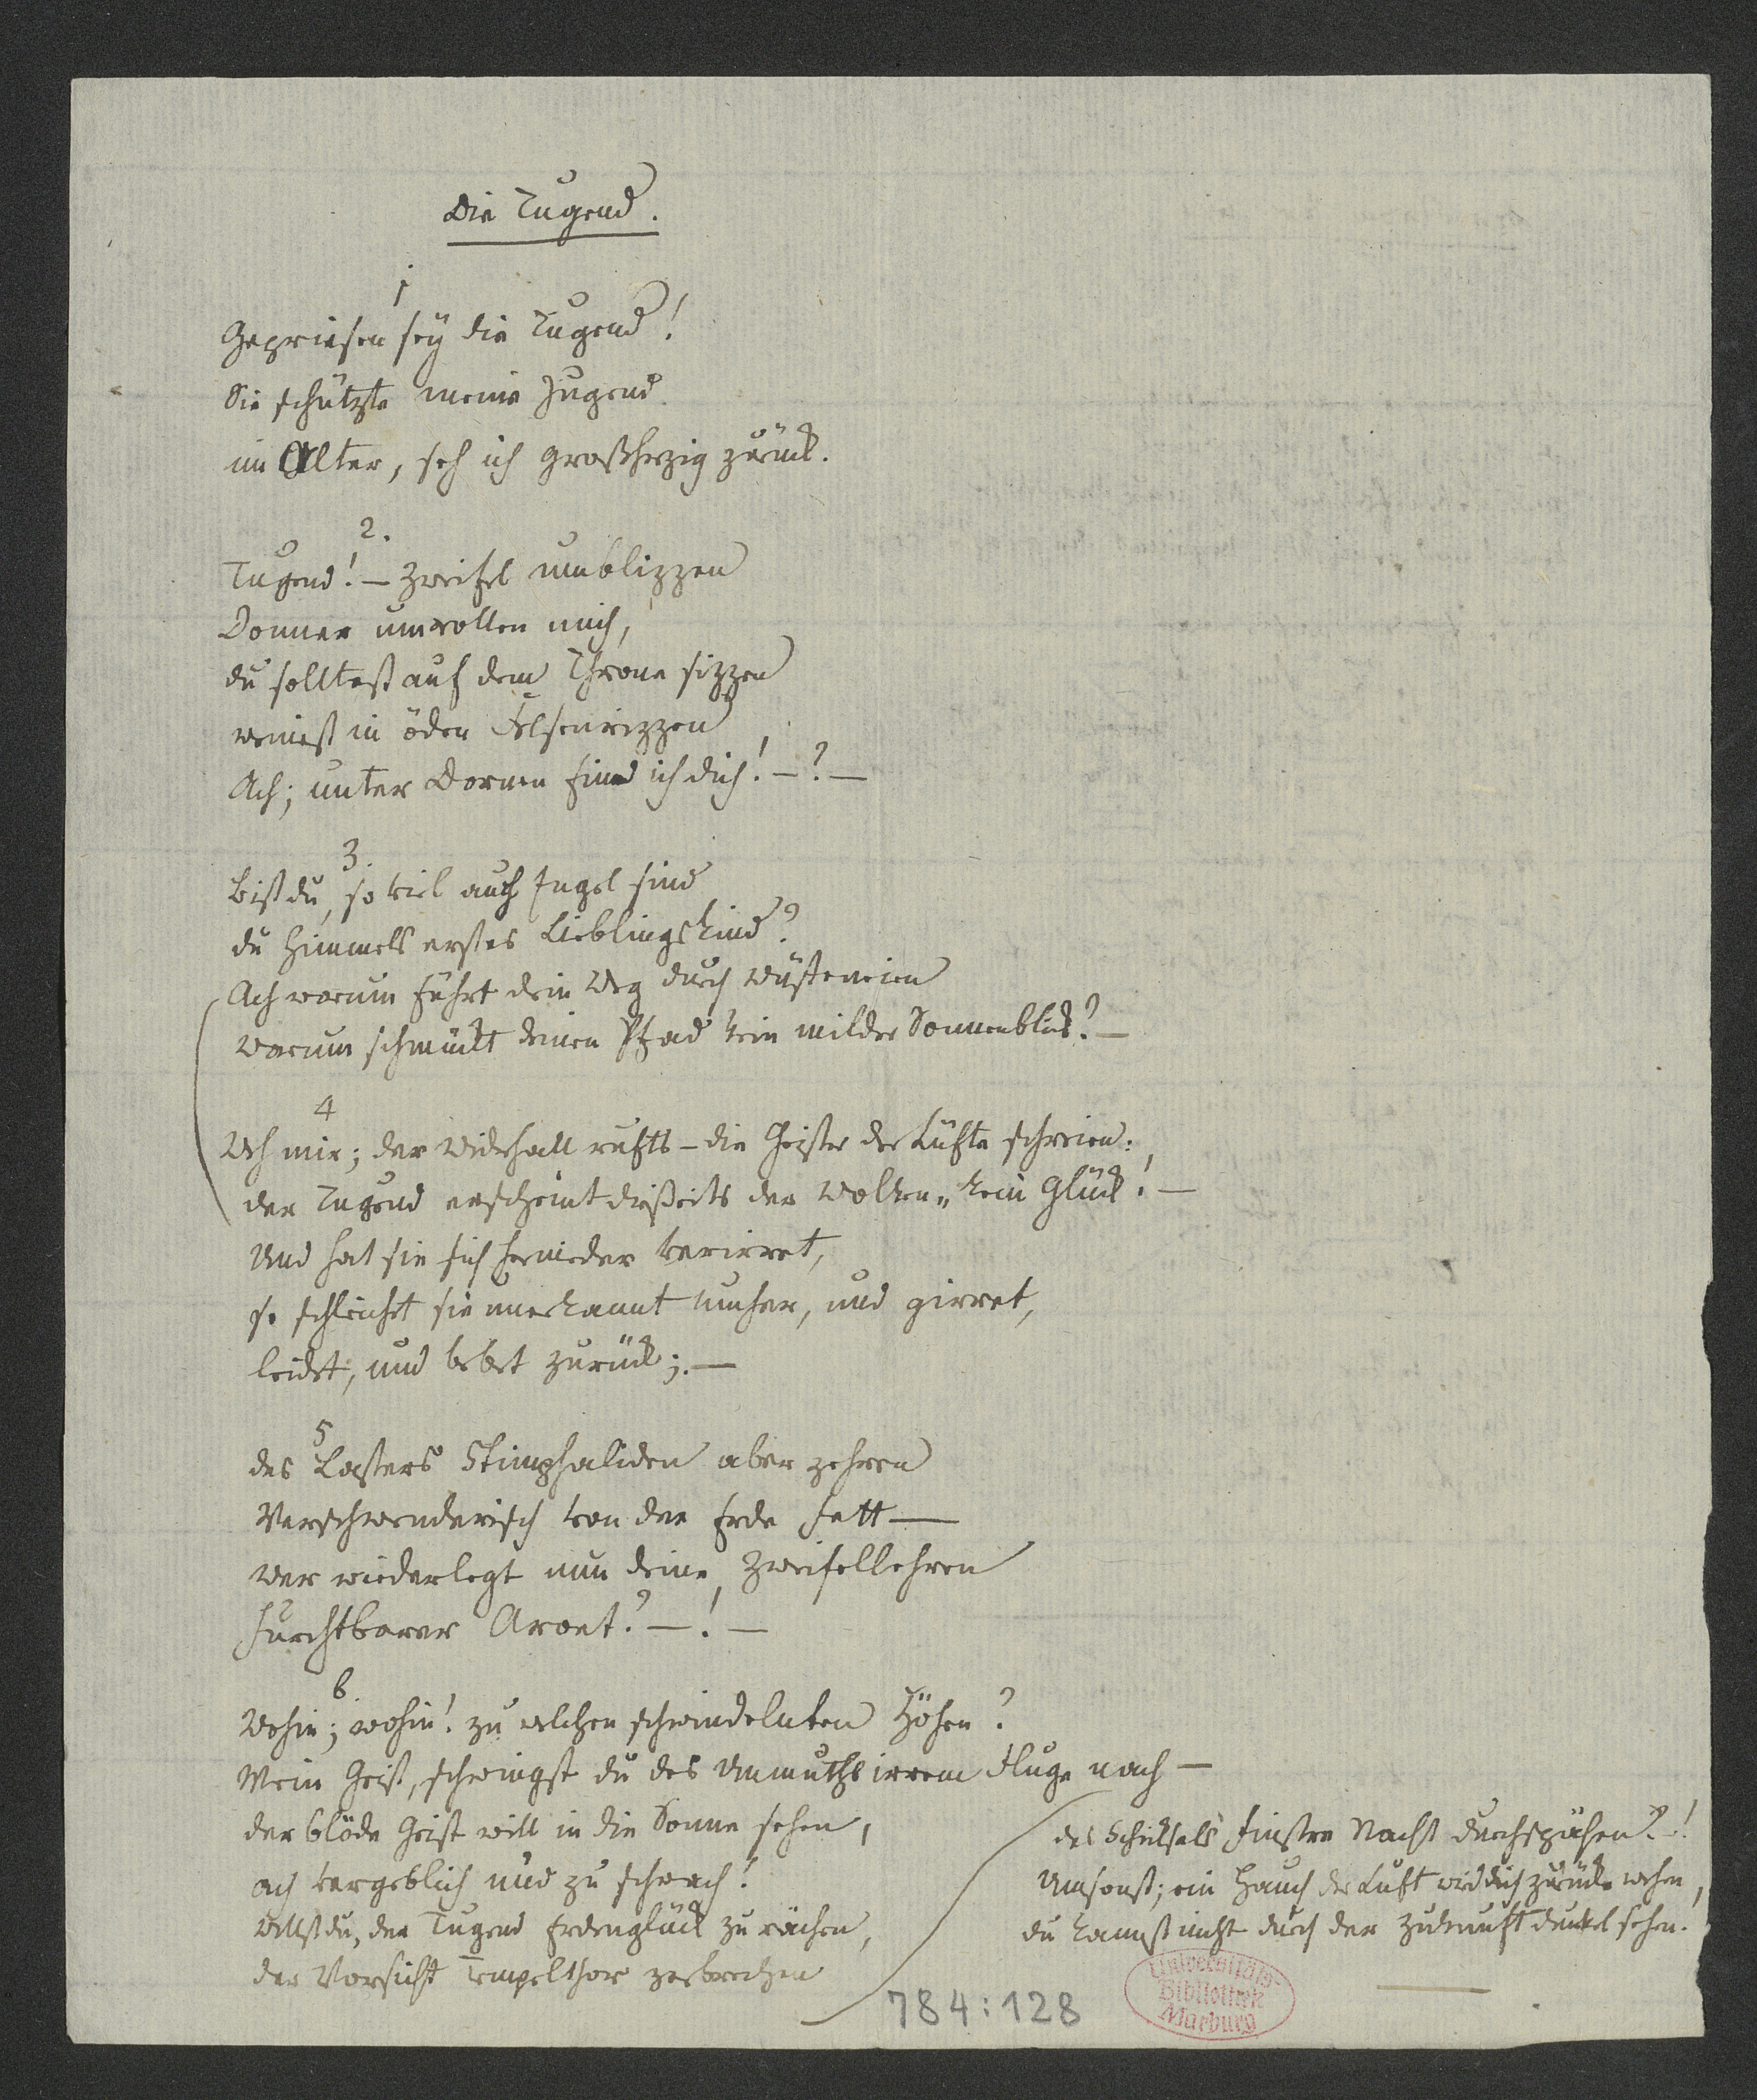 Die Tugend.
1
Gepriesen sey die Tugend!
Sie schützte meine Jugend
im Alter, seh ich großherzig zurück.
2.
Tugend! — Zweifel umblizzen
Donner umrollen mich,
du solltest auf dem Throne sizzen
weinest in öden Felsenrizzen
Ach; unter Dornen find ich dich! — ? —
3.
Bist du, so viel auch Engel sind
du Himmels erstes Lieblingskind?
Ach warum führt dein Weg durch Wüsteneien
warum schmückt deinen Pfad kein milder Sonnenblick? —
4
Weh mir; der Widerhall rufts — die Geister der Lüfte schreien:
der Tugend erscheint dißeits der Wolken „kein Glück! —
Und hat sie sich hernieder verirret,
so schleichet sie unerkannt umher, und girret,
leidet, und bebet zurück; —
5
des Lasters Stimphaliden aber zehren
Verschwenderisch von der Erde Fett —
wer wiederlegt nun deine Zweifellehren
furchtbarer Arouet? — ! —
6.
Wohin; wohin! zu welchen schwindelnten Höhen?
Mein Geist, schwingst du des Unmuths irrem Fluge nach —
der blöde Geist will in die Sonne sehen,
ach vergeblich und zu schwach!
Willst du, der Tugend Erdenglück zu rächen,
der Vorsicht Tempelthor zerbrechen
des Schicksals finstre Nacht durchspähen? — !
Umsonst; ein Hauch der Luft wird dich zurücke wehen,
du kannst nicht durch der Zukunft dunkel sehen.
784:128
Universitäts-
Bibliothek
Marburg